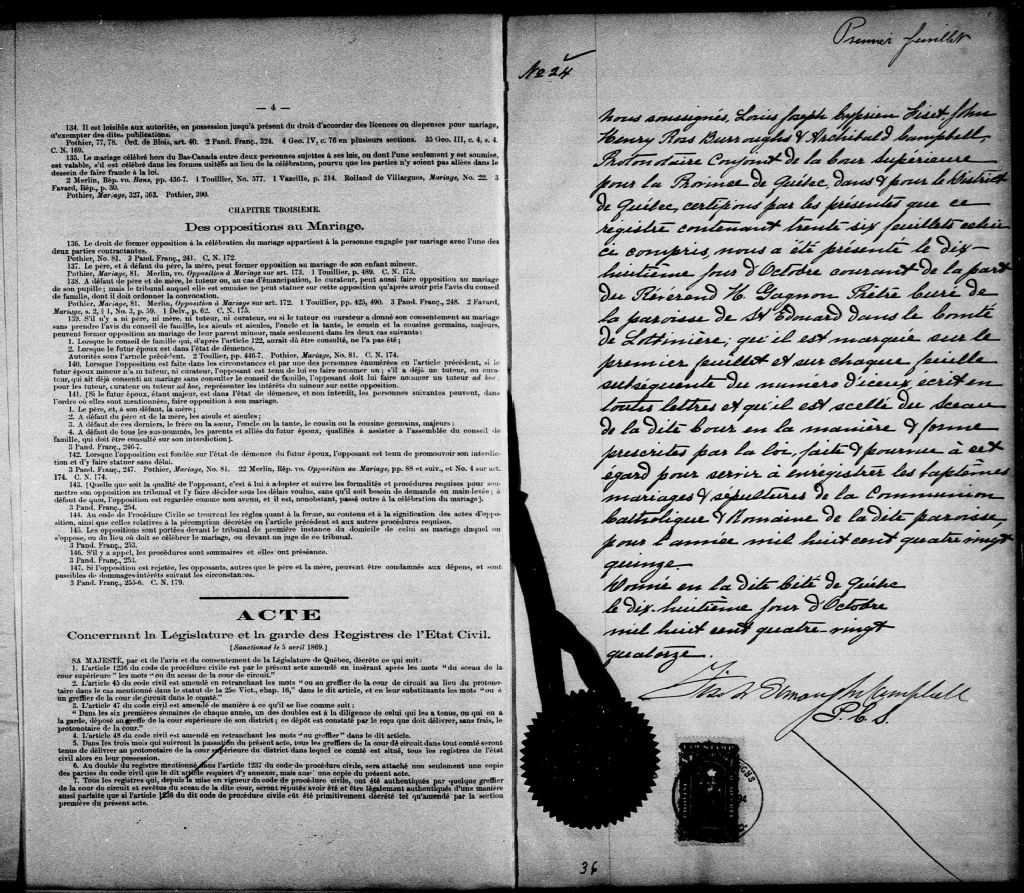 — 4 —
134. Il est loisible aux autorités, en possession jusqu'à présent du droit d'accorder des licences ou dispenses pour mariage,
d'exempter des dites publications.
Pothier, 77, 78. Ord. de Blois, art. 40. 2 Pand. Franç., 324. 4 Geo. IV, c. 76 en plusieurs sections. 35 Geo. III, c. 4, s. 4.
C. N. 169.
135. Le mariage célébré hors du Bas-Canada entre deux personnes sujettes à ses lois, ou dont l'une seulement y est soumise,
est valable, s'il est célébré dans les formes usitées au lieu de la célébration, pourvu que les parties n'y soient pas allées dans le
dessein de faire fraude à la loi.
2 Merlin, Rép. vo. Bans, pp. 436-7. 1 Touillier, No. 577. 1 Vazeille, p. 314. Rolland de Villargues, Mariage, No. 22. 3
Favard, Rép., p. 30.
Pothier, Mariage, 327, 363. Pothier, 390.
CHAPITRE TROISIÈME.
Des oppositions au Mariage.
136. Le droit de former opposition à la célébration du mariage appartient à la personne engagée par mariage avec l'une des
deux parties contractantes.
Pothier, No. 81. 3 Pand. Franç., 241. C. N. 172.
137. Le père, et à défaut du père, la mère, peut former opposition au mariage de son enfant mineur.
Pothier, Mariage, 81. Merlin, vo. Opposition à Mariage sur art. 173. 1 Touillier, p. 489. C. N. 173.
138. A défaut de père et de mère, le tuteur, ou, au cas d'émancipation, le curateur, peut aussi faire opposition au mariage
de son pupille; mais le tribunal auquel elle est soumise ne peut statuer sur cette opposition qu'après avoir pris l'avis du conseil
de famille, dont il doit ordonner la convocation.
Pothier, Mariage, 81. Merlin, Opposition à Mariage sur art. 172. 1 Touillier, pp. 425, 490. 3 Pand. Franç., 248. 2 Favard,
Mariage, s. 2, § 1, No. 3, p. 59. 1 Delv., p. 62. C. N. 175.
139. S'il n'y a ni père, ni mère, ni tuteur, ni curateur, ou si le tuteur ou curateur a donné son consentement au mariage
sans prendre l'avis du conseil de famille, les aïeuls et aïeules, l'oncle et la tante, le cousin et la cousine germains, majeurs,
peuvent former opposition au mariage de leur parent mineur, mais seulement dans les deux cas suivants:
1. Lorsque le conseil de famille qui, d'après l'article 122, aurait dû être consulté, ne l'a pas été;
2. Lorsque le futur époux est dans l'état de démence.
Autorités sous l'article précédent. 2 Toullier, pp. 446-7. Pothier, Mariage, No. 81. C. N. 174.
140. Lorsque l'opposition est faite dans les circonstances et par une des personnes énumérées en l'article précédent, si le
futur époux mineur n'a ni tuteur, ni curateur, l'opposant est tenu de lui en faire nommer un; s'il a déjà un tuteur, ou cura-
teur, qui ait déjà consenti au mariage sans consulter le conseil de famille, l'opposant doit lui faire nommer un tuteur ad hoc;
pour les tuteur, curateur ou tuteur ad hoc, représenter les intérêts du mineur sur cette opposition.
141. [Si le futur époux, étant majeur, est dans l'état de démence, et non interdit, les personnes suivantes peuvent, dans
l'ordre où elles sont mentionnées, faire opposition à son mariage.
1. Le père, et, à son défaut, la mère;
2. A défaut du père et de la mère, les aïeuls et aïeules;
3. A défaut de ces derniers, le frère ou la sœur, l'oncle ou la tante, le cousin ou la cousine germains, majeurs;
4. A défaut de tous les sus-nommés, les parents et alliés du futur époux, qualifiés à assister à l'assemblée du conseil de
famille, qui doit être consulté sur son interdiction].
3 Pand. Franç., 246-7.
142. Lorsque l'opposition est fondée sur l'état de démence du futur époux, l'opposant est tenu de promouvoir son interdic-
tion et d'y faire statuer sans délai.
3 Pand. Franç., 247. Pothier, Mariage, No. 81. 22 Merlin, Rép. vo Opposition au Mariage, pp. 88 et suiv., et No. 4 sur art.
174. C. N. 174.
143. [Quelle que soit la qualité de l'opposant, c'est à lui à adopter et suivre les formalités et procédures requises pour sou-
mettre son opposition au tribunal et l'y faire décider sous les délais voulus, sans qu'il soit besoin de demande en main-levée; à
défaut de quoi, l'opposition est regardée comme non avenu, et il est, nonobstant, passé outre à la célébration du mariage].
3 Pand. Franç., 254.
144. Au code de Procédure Civile se trouvent les règles quant à la forme, au contenu et à la signification des actes d'oppo-
sition, ainsi que celles relatives à la péremption décrétée en l'article précédent et aux autres procédures requises.
145. Les oppositions sont portées devant le tribunal de première instance du domicile de celui au mariage duquel on
s'oppose, ou du lieu où doit se célébrer le mariage, ou devant un juge de ce tribunal.
3 Pand. Franç., 253.
146. S'il y a appel, les procédures sont sommaires et elles ont préséance.
3 Pand. Franç., 253.
147. Si l'opposition est rejetée, les opposants, autres que le père et la mère, peuvent être condamnés aux dépens, et sont
passibles de dommages-intérêts suivant les circonstances.
3 Pand. Franç., 255-6. C. N. 179.
ACTE
Concernant la Législature et la garde des Registres de l'Etat Civil.
[Sanctionné le 5 avril 1869.]
SA MAJESTÉ, par et de l'avis et du consentement de la Législature de Québec, décrète ce qui suit:
1. L'article 1236 du code de procédure civile est par le présent acte amendé en insérant après les mots "du sceau de la
cour supérieure" les mots "ou du sceau de la cour de circuit."
2. L'article 45 du code civil est amendé en retranchant les mots "ou au greffier de la cour de circuit au lieu du protono-
taire dans le cas mentionné dans le statut de la 25e Vict., chap. 16," dans le dit article, et en leur substituant les mots "ou à
un greffier de la cour de circuit dans le comté."
3. L'article 47 du code civil est amendé de manière à ce qu'il se lise comme suit:
"Dans les six premières semaines de chaque année, un des doubles est à la diligence de celui qui les a tenus, ou qui en a
la garde, déposé au greffe de la cour supérieure de son district; ce dépôt est constaté par le reçu que doit délivrer, sans frais, le
protonotaire de la cour."
4. L'article 48 du code civil est amendé en retranchant les mots "ou greffier" dans le dit article.
5. Dans les trois mois qui suivront la passation du présent acte, tous les greffiers de la cour de circuit dans tout comté seront
tenus de délivrer au protonotaire de la cour supérieure du district dans lequel ce comté est situé, tous les registres de l'état
civil alors en leur possession.
6. Au double du registre mentionné dans l'article 1237 du code de procédure civile, sera attaché non seulement une copie
des parties du code civil que le dit article requiert d'y annexer, mais aussi une copie du présent acte.
7. Tous les registres qui, depuis la mise en vigueur du code de procédure civile, ont été authentiqués par quelque greffier
de la cour de circuit et revêtus du sceau de la dite cour, seront réputés avoir été et être légalement authentiqués d'une manière
aussi parfaite que si l'article 1236 du dit code de procédure civile eût été primitivement décrété tel qu'amendé par la section
première du présent acte.
Premier feuillet
No 24
Nous soussignés, Louis Joseph Cyprien Fiset, John
Henry Ross Burroughs & Archibald Campbell,
Protonotaire Conjoint de la Cour Supérieure
pour la Province de Québec, dans & pour le District
de Québec, certifions par les présentes que ce
registre contenant trente-six feuillets celui
ci compris, nous a été présenté le dix-
huitième jour d'Octobre courant de la part
du Révérend H. Gagnon Prêtre curé de
la paroisse de St Edouard dans le Comté
de Lotbinière; qu'il est marqué sur le
premier feuillet et sur chaque feuille
subséquente du numéro d'iceux écrit en
toutes lettres et qu'il est scellé du Sceau
de la dite Cour en la manière & forme
prescrites par la loi, faite & pourvue à cet
égard pour servir à enregistrer les baptêmes
mariages & sépultures de la Communion
Catholique & Romaine de la dite paroisse,
pour l'année mil huit cent quatre vingt
quinze.
Donné en la dite Cité de Québec
le dix-huitième jour d'Octobre
mil huit cent quatre-vingt
quatorze.
Campbell
P. C. S.
36